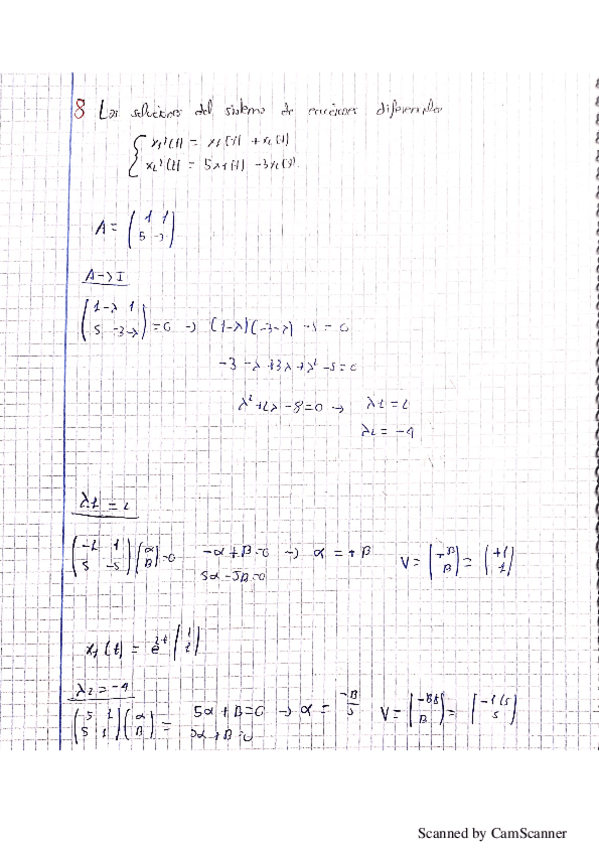 8 Las soluciones del sistema de ecuaciones diferenciales
x₁'(t) = x₁(t) + x₂(t)
x₂'(t) = 5x₁(t) - 3x₂(t)
A = (1 1
5 -3)
A - λI
(1-λ 1
5 -3-λ) = 0 → (1-λ)(-3-λ) - 5 = 0
-3 - λ + 3λ + λ² - 5 = 0
λ² + 2λ - 8 = 0 → λ1 = 2
λ2 = -4
λ1 = 2
(-1 1
5 -5)(α
B) = 0 -α + B = 0 → α = + B V = (+B
B) = (+1
1)
5α - 5B = 0
x₁(t) = e²ᵗ (1
1)
λ2 = -4
(5 1
5 1)(α
B) = 5α + B = 0 → α = -B/5 V = (-B/5
B) =
5α + B = 0
Scanned by CamScanner